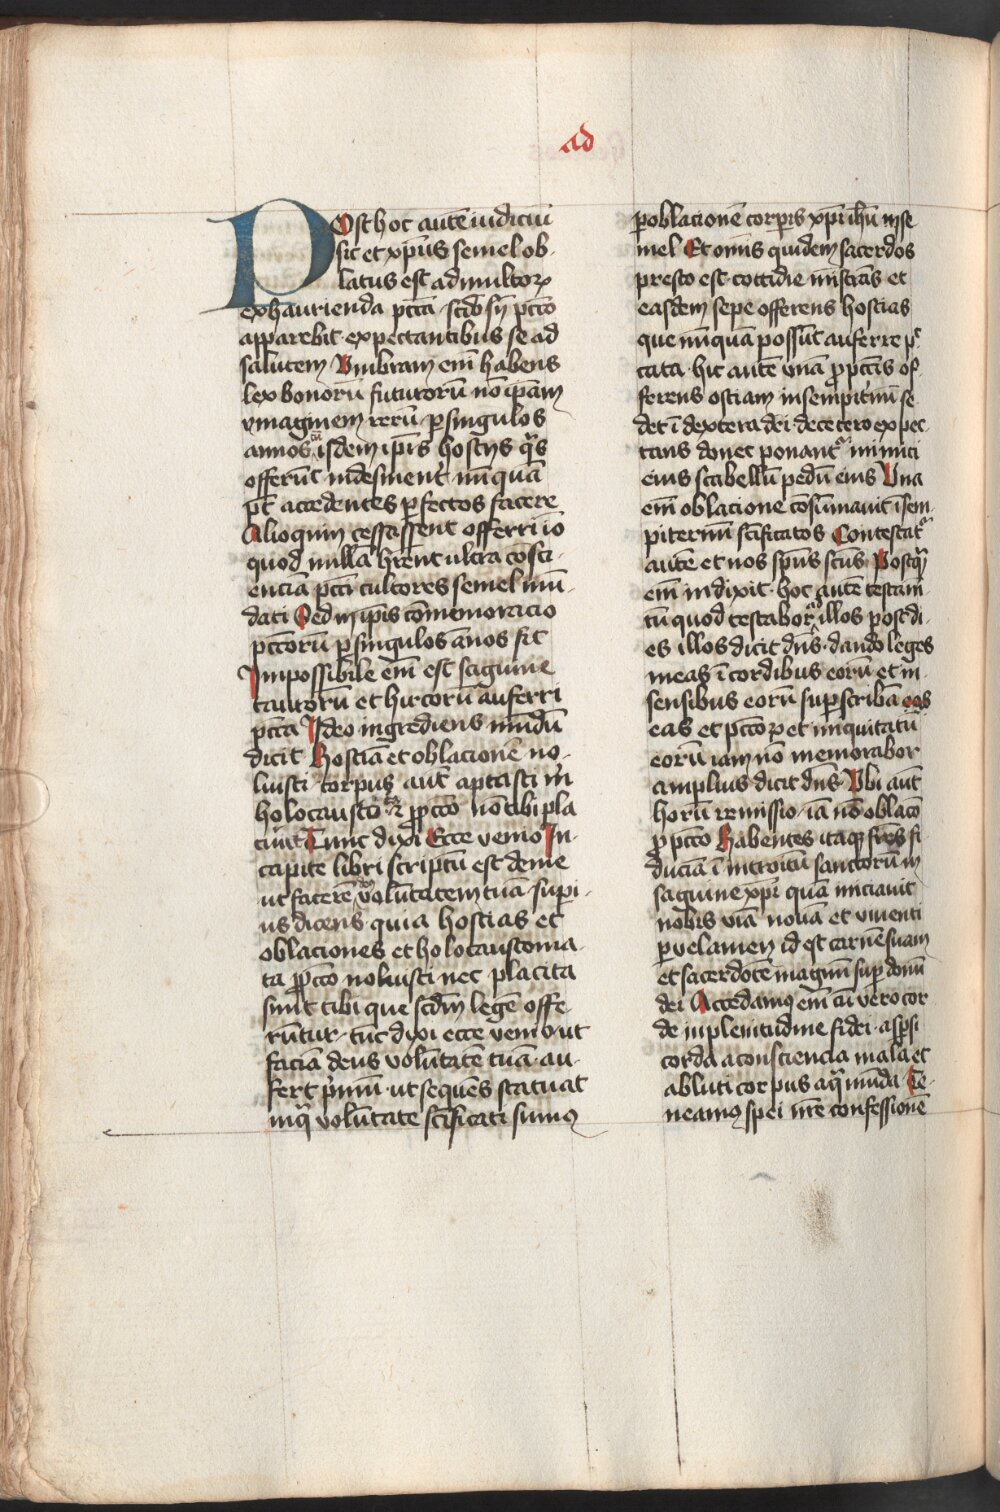 ad
POst hoc autē iudiciū
sic et xp̄us semel ob-
latus est ad multoꝝ
exhaurienda pctā · scdō sn̄ pctō
apparebit · expectantibus se ad
salutem Vmbram em̄ habens
lex bonorū futurorū nō ip̄am
ymaginem rerū · ꝑ singulos
annos isdem ip̄is hostijs qͣs
offerūt indesinent̾ nūquā
pt̄ accedentes ꝑfectos facere
Alioquin cessassent offerri io
quod nullā hr̄ent ultra cōsci-
enciā pcti cultores semel mū-
dati Sed in ip̄is cōmemoracio
pctōrū ꝑ singulos ānos fit
Impossibile em̄ est sāguine
taurorū et hircorū auferri
pctā Ideo ingrediens mūdū
dicit Hostiā et oblacionē no-
luisti corpus aut̄ aptasti m̄
holocaustō ꝛ ꝓ pctō nō tibi pla
cuit Tunc dixi Ecce venio In
capite libri scriptū est de me
ut facerē voluntatem tuā · supi-
us dicens · quia hostias et
oblaciones et holocaustoma
ta ꝓ pctō noluisti nec placita
sunt tibi que scdm̄ legē offe
rūtur · tūc dixi ecce venio ut
faciā deus volūtatē tuā · au-
fert p̄mū · ut sequēs statuat
in qͣ volūtate scīficati sumꝯ
ꝑ oblacionē corꝑis xp̄i ih̄u in se
mel Et omis quidem sacerdos
presto est · cottidie mīstrās et
easdem sepe offerens hostias
que nūquā possūt auferre pc̄
cata · hic autē vnā ꝓ pctīs of
ferens ostiam in sempitnū se
det ī dextera dei · de cetero expec
tans donec ponant᷑ inimici
eius scabellū pedū eius Vna
em̄ oblacione cōsūmauit ī sem-
piternū scīficatos Contestat᷑
autē et nos sp̄us scūs Postqͣ
em̄ indixit · hoc autē testam̄
tū quod testabor illos post di-
es illos dicit dn̄s · dando leges
meas ī cordibus eorū et in
sensibus eorū sup̄scribā eos
eas et pctōꝝ et iniquitatū
eorū iam nō memorabor
amplius dicit dn̄s Vbi aut̄
horū remissio · iā nō oblacō
ꝓ pctō Habentes itaqꝫ frēs fi
duciā ī introitū sanctorū in
sāguine xp̄i quā iniciauit
nobis viā nouā et viuentē
ꝑ velamen id est carnē suam
et sacerdotē magnū sup̄ domū
dei Accedamꝯ em̄ cū vero cor
de in plenitudine fidei · aspsi
corda a consciencia mala et
abluti corpus aqͣ mūda Te-
neamꝯ spei nr̄e confessionē